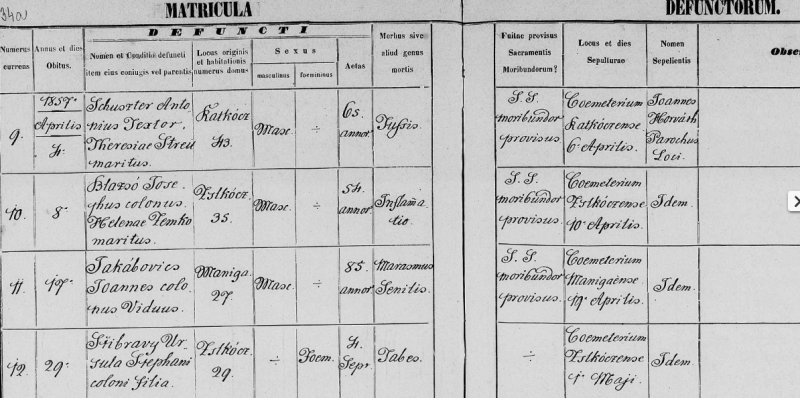 340
MATRICULA
DEFUNCTORUM.
DEFUNCTI
Numerus
currens
Annus et dies
Obitus.
Nomen et Conditio defuncti
item eius coniugis vel parentis
Locus originis
et habitationis
numerus domus
Sexus
masculinus
foemininus
Aetas
Morbus sive
aliud genus
mortis
Fuitne provisus
Sacramentis
Moribundorum?
Locus et dies
Sepulturae
Nomen
Sepelientis
Obser
9.
1857.
Aprilis
4.
Schuszter Anto-
nius Textor.
Theresiae Streu
maritus.
Katkócz
43.
Masc.
÷
65.
annor.
Tussis.
S. S.
moribundor
provisus.
Coemeterium
Katkóczense
6. Aprilis.
Joannes
Horváth
Parochus
Loci.
10.
8.
Blazsó Jose-
phus colonus.
Helenae Zemko
maritus.
Zslkócz.
35.
Masc.
÷
54.
annor.
Inflam̃a
tio.
S. S.
moribundor
provisus.
Coemeterium
Zslkóczense
10. Aprilis.
Idem.
11.
17.
Jakábovics
Joannes colo-
nus Viduus.
Maniga.
27.
Masc.
÷
85.
annor.
Marasmus
Senilis.
S. S.
moribundor
provisus.
Coemeterium
Manigaènse
19. Aprilis.
Idem.
12.
29.
Stibravy Ur-
sula Stephani
coloni filia.
Zslkócz.
29.
÷
Foem.
4.
Sept.
Tabes.
÷
Coemeterium
Zslkóczense
1. Maji.
Idem.